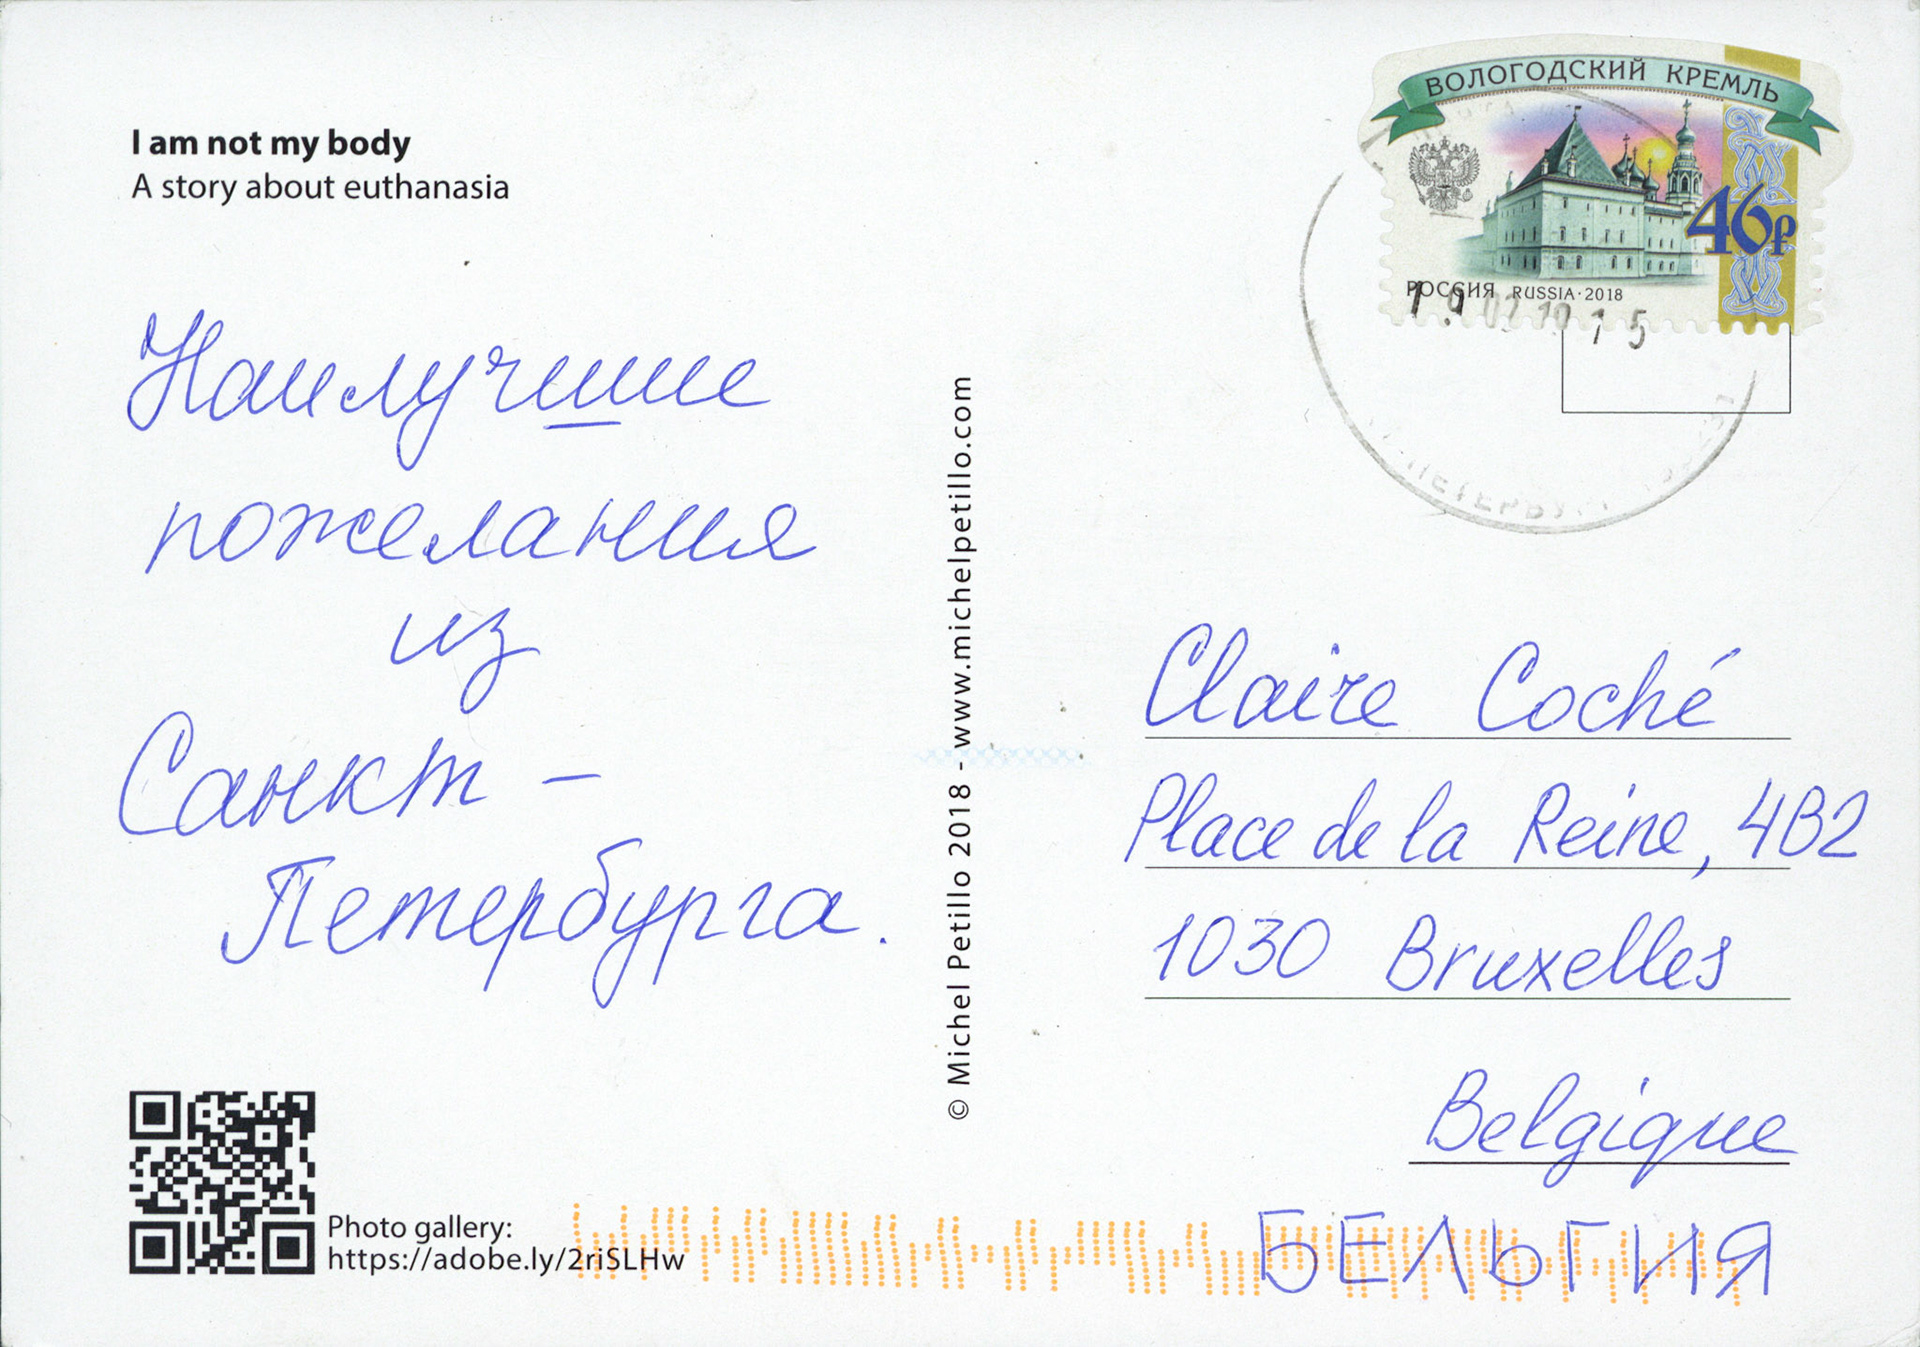 I am not my body
A story about euthanasia
Наилучшие
пожелания
из
Санкт –
Петербурга.
Photo gallery:
https://adobe.ly/2riSLHw
© Michel Petillo 2018 - www.michelpetillo.com
ВОЛОГОДСКИЙ КРЕМЛЬ
46₽
РОССИЯ RUSSIA·2018
Claire Coché
Place de la Reine, 4B2
1030 Bruxelles
Belgique
БЕЛЬГИЯ